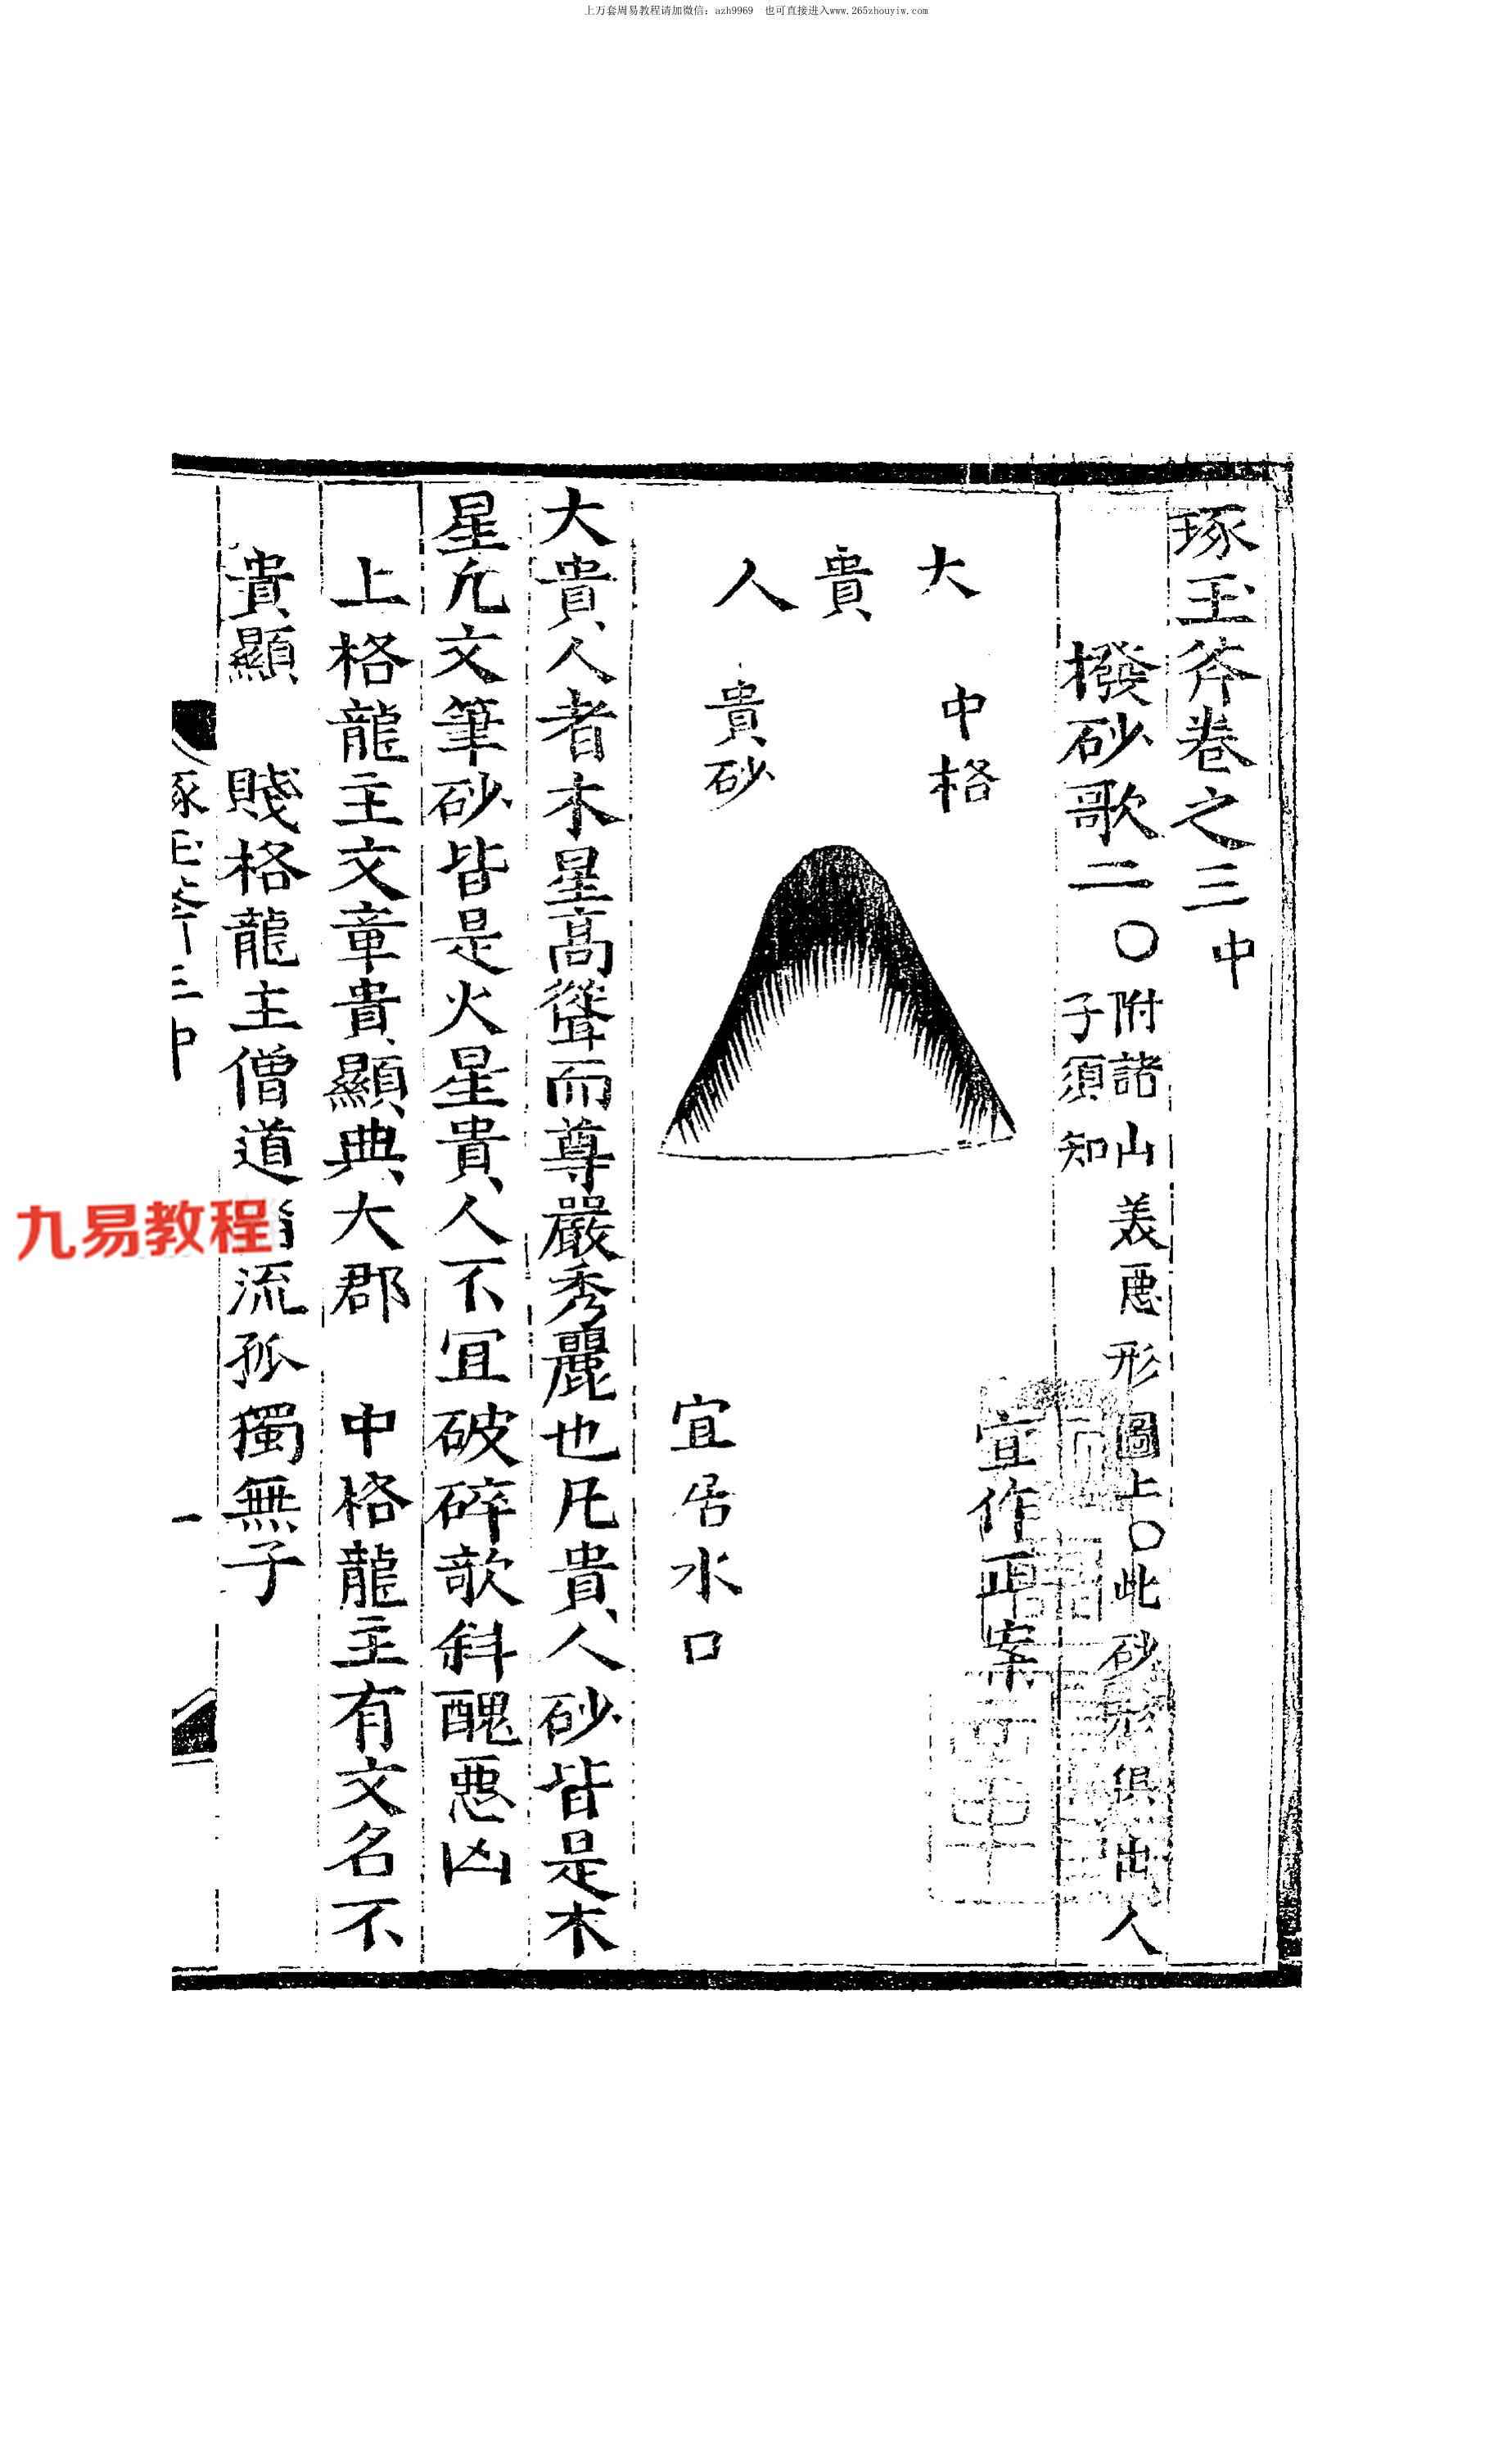 上万套周易教程请加微信：azh9969　也可直接进入www.265zhouyiw.com
琢玉斧卷之三中
撥砂歌二〇附諸山美惡形圖上〇此砂形俱出人
子須知
大貴人
中格
貴砂
宜作正案
宜居水口
大貴人者木星高聳而尊嚴秀麗也凡貴人砂皆是木
星凡文筆砂皆是火星貴人不宜破碎欹斜醜惡凶
上格龍主文章貴顯典大郡　中格龍主有文名不
貴顯　賤格龍主僧道流孤獨無子
琢玉斧三中
一
九易教程